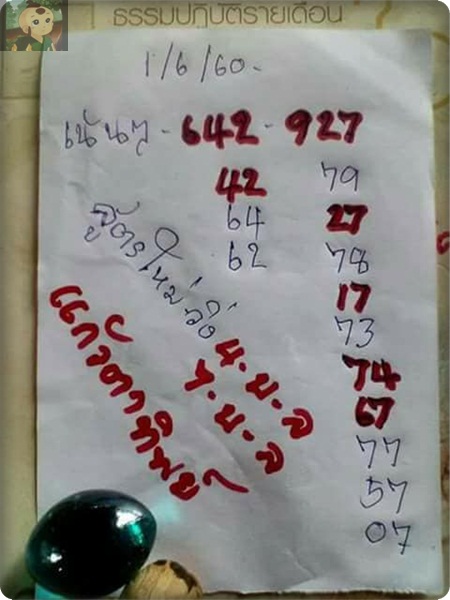 ธรรมปฏิบัติรายเดือน
1/6/60-
เน้นๆ - 642 - 927
42 79
64 27
62 78
สูตรใหม่วิ่ง
17
73
น.บ.ล
ว.บ.ล
74
67
แก้วตาทิพย์
77
57
07